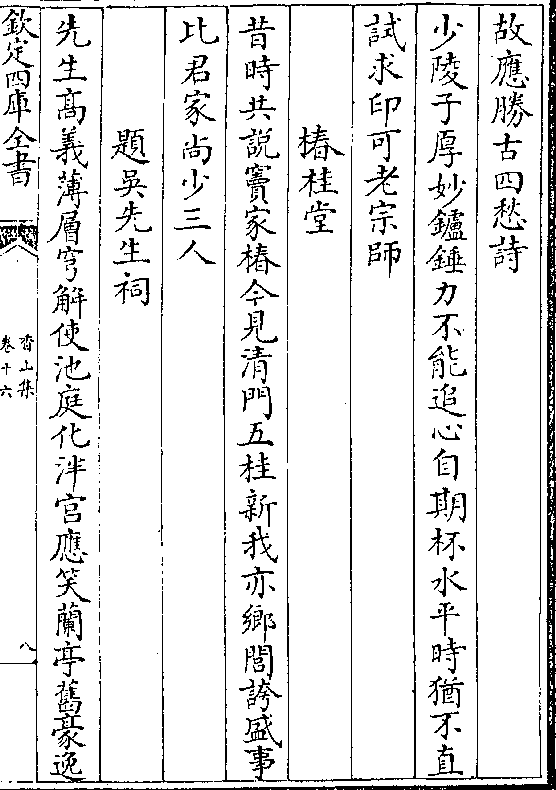 故應勝古四愁詩
少陵子厚妙鑪錘力不能追心自期杯水平時猶不直
試求印可老宗師
椿桂堂
昔時共說竇家椿今見清門五桂新我亦鄉閭誇盛事
比君家尚少三人
題吳先生祠
先生髙義薄層穹解使池庭化泮宮應笑蘭亭舊豪逸
欽定四庫全書
香山集
卷十六
八